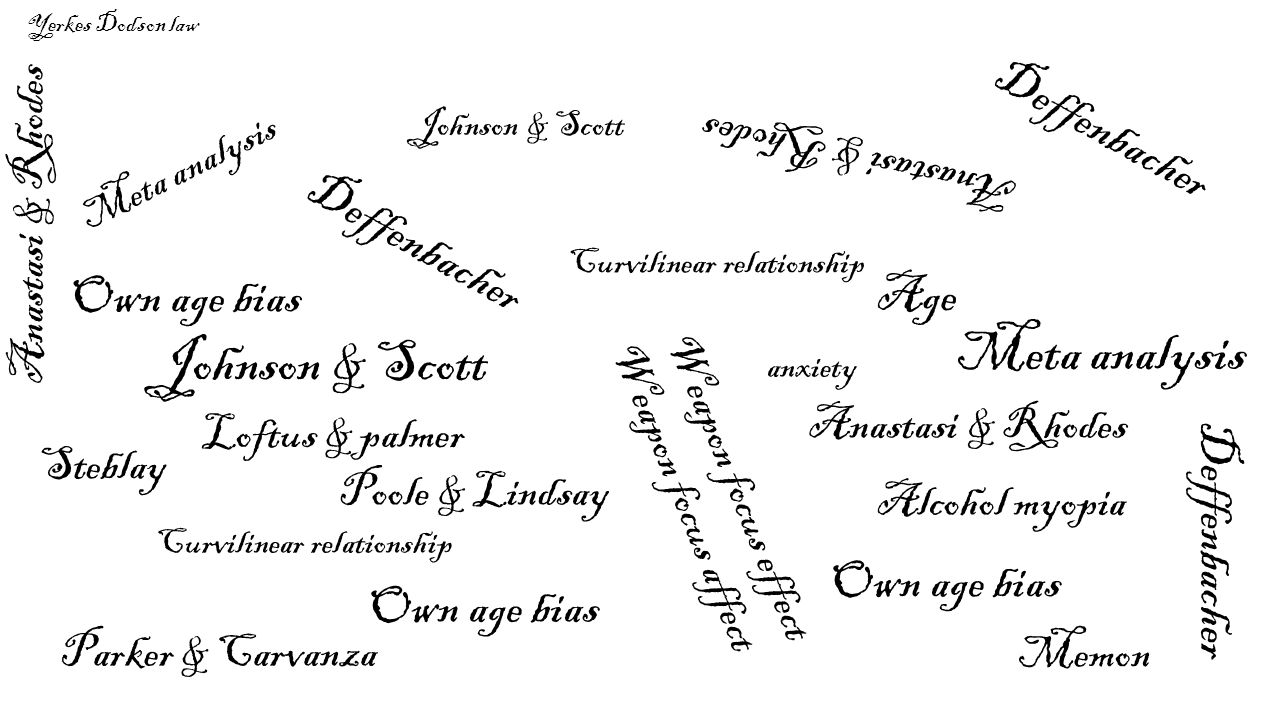 Yerkes Dodson law
Anastasi & Rhodes
Meta analysis
Johnson & Scott
Anastasi & Rhodes
Deffenbacher
Deffenbacher
Curvilinear relationship
Own age bias
Age
Johnson & Scott
Meta analysis
anxiety
Weapon focus affect
Weapon focus effect
Loftus & palmer
Anastasi & Rhodes
Steblay
Poole & Lindsay
Alcohol myopia
Deffenbacher
Curvilinear relationship
Own age bias
Own age bias
Parker & Carvanza
Memon